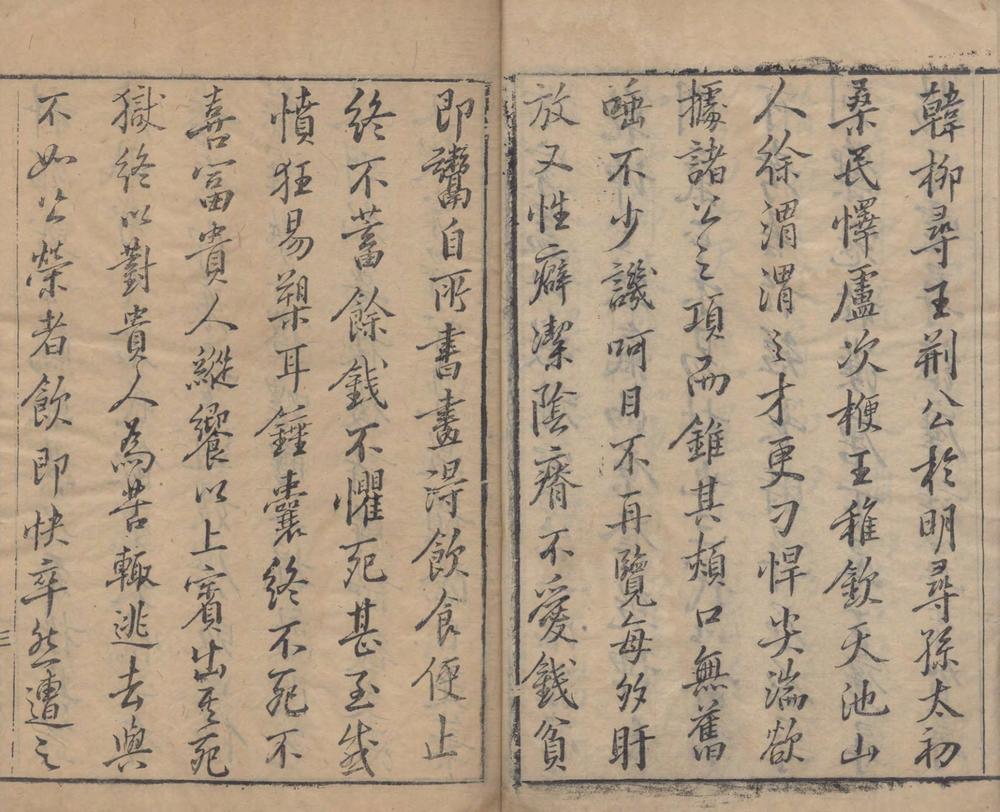 韓柳尋王荆公於明尋孫太初
桑民懌盧次楩王稚欽天池山
人徐渭渭之才更刁悍尖湍欲
據諸公之項而錐其頰口無舊
唾不少譏呵目不再覽每多盱
放又性癖潔陰瘠不愛錢貧
即鬻自所書畫得飲食便止
終不蓄餘錢不懼死甚至感
憤狂易槊耳錘囊終不死不
喜富貴人縱饗以上賓出其死
獄終以對貴人為苦輒逃去與
不如公榮者飲即快卒然遭之
三